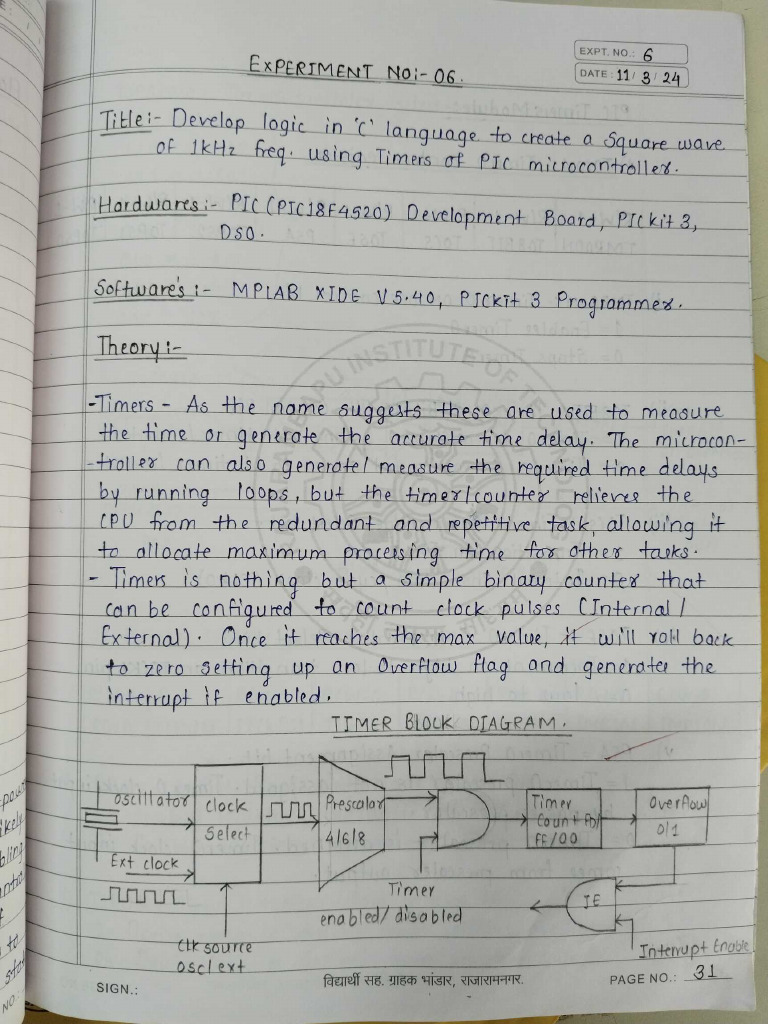 EXPT. NO.: 6
DATE: 11/ 3/ 24
EXPERIMENT NO:- 06.
Title:- Develop logic in 'C' language to create a Square wave
of 1kHz freq. using Timers of PIC microcontroller.
Hardwares:- PIC (PIC18F4520) Development Board, PICkit 3,
DSO.
Software's :- MPLAB XIDE V5.40, PICkit 3 Programmer.
Theory:-
INSTITUTE OF
-Timers - As the name suggests these are used to measure
the time or generate the accurate time delay. The microcon-
-troller can also generate/ measure the required time delays
by running loops, but the timer/counter relieves the
CPU from the redundant and repetitive task, allowing it
to allocate maximum processing time for other tasks.
- Timers is nothing but a simple binary counter that
can be configured to count clock pulses (Internal /
External). Once it reaches the max value, it will roll back
to zero setting up an Overflow flag and generates the
interrupt if enabled.
TIMER BLOCK DIAGRAM.
oscillator
Clock
Select
Prescalar
4/6/8
Timer
FF/00
Overflow
0/1
Ext clock
Timer
enabled/disabled
IE
Clk source
osc/ext
Interrupt Enable
SIGN.:
विद्यार्थी सह. ग्राहक भांडार, राजारामनगर.
PAGE NO.: 31